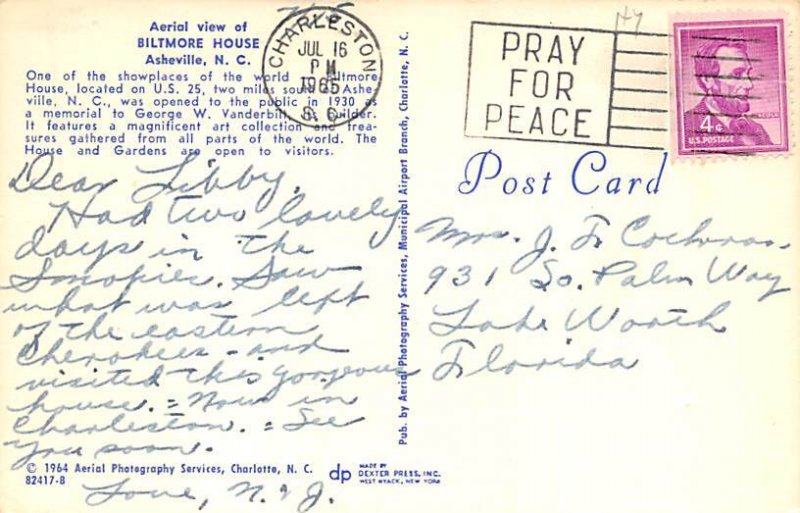 Aerial view of
BILTMORE HOUSE
Asheville, N. C.
One of the showplaces of the world Biltmore
House, located on U.S. 25, two miles south of Ashe-
ville, N. C., was opened to the public in 1930 as
a memorial to George W. Vanderbilt, its builder.
It features a magnificent art collection and trea-
sures gathered from all parts of the world. The
House and Gardens are open to visitors.
Dear Libby,
Had two lovely
days in the
Smokies. Saw
what was left
of the eastern
Cherokees - and
visited this gorgeous
house. = Now in
Charleston. = See
you soon.
Love, N. & J.
© 1964 Aerial Photography Services, Charlotte, N. C.
82417-B
dp
MADE BY
DEXTER PRESS, INC.
WEST NYACK, NEW YORK
Pub. by Aerial Photography Services, Municipal Airport Branch, Charlotte, N. C.
CHARLESTON
JUL 16
PM
1965
S. C.
PRAY
FOR
PEACE
4¢
LINCOLN
U.S. POSTAGE
Post Card
Mrs. J. F. Cochran
931 So. Palm Way
Lake Worth
Florida